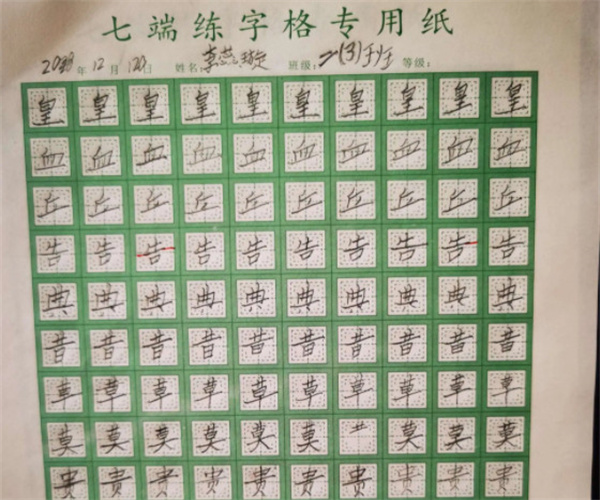 七端练字格专用纸
年 12 月 日 姓名: 班级:二(3)班 等级:
皇 皇 皇 皇 皇 皇 皇 皇 皇 皇
血 血 血 血 血 血 血 血 血 血
丘 丘 丘 丘 丘 丘 丘 丘 丘 丘
告 告 告 告 告 告 告 告 告 告
典 典 典 典 典 典 典 典 典 典
昔 昔 昔 昔 昔 昔 昔 昔 昔 昔
草 草 草 草 草 草 草 草 草 草
莫 莫 莫 莫 莫 莫 艹 莫 莫 莫
贵 贵 贵 贵 贵 贵 贵 贵 贵 贵